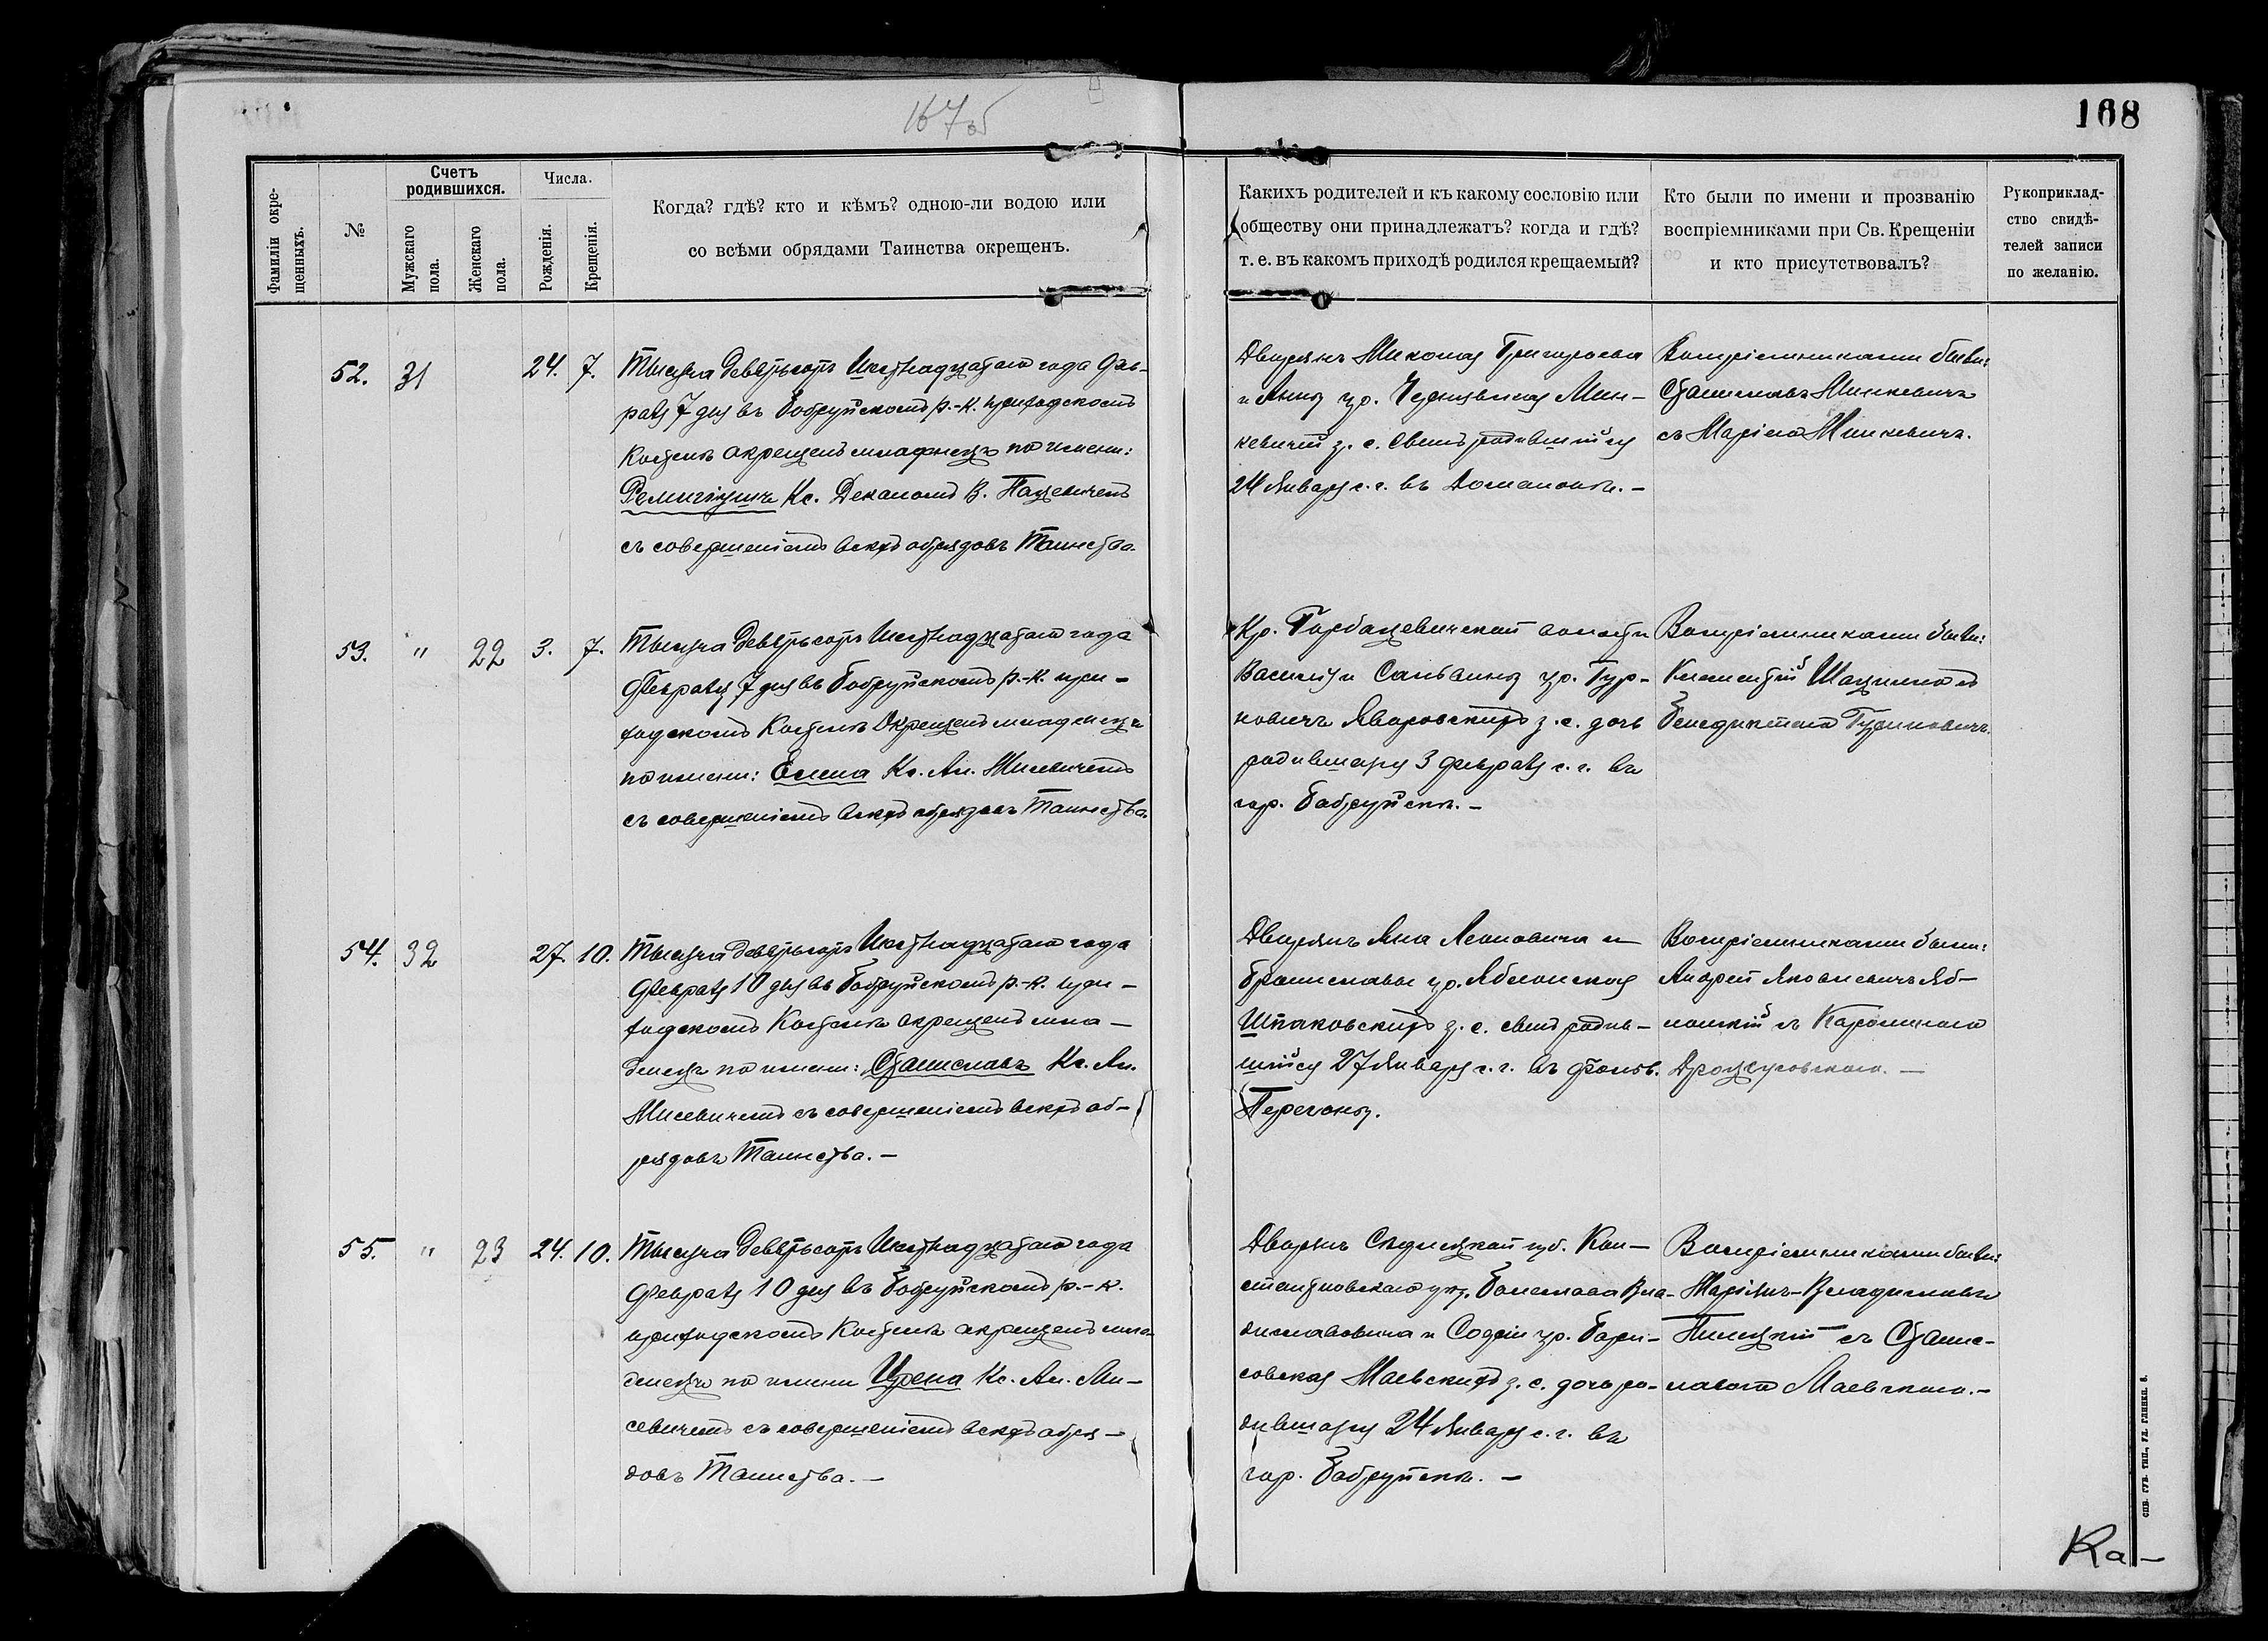 167об
168
Фамиліи окре-
щенныхъ.
№
Счетъ
родившихся.
Мужскаго
пола.
Женскаго
пола.
Числа.
Рожденія.
Крещенія.
Когда? гдѣ? кто и кѣмъ? одною-ли водою или
со всѣми обрядами Таинства окрещенъ.
Какихъ родителей и къ какому сословію или
обществу они принадлежатъ? когда и гдѣ?
т. е. въ какомъ приходѣ родился крещаемый?
Кто были по имени и прозванію
воспріемниками при Св. Крещеніи
и кто присутствовалъ?
Рукоприклад-
ство свидѣ-
телей записи
по желанію.
52. 31 24. 7.
Тысяча девятьсотъ Шестнадцатаго года Фев-
раля 7 дня въ Бобруйскомъ р.-к. приходскомъ
Костелѣ окрещенъ младенецъ по имени:
Ремигіушъ Кс. Деканомъ В. Пацевичемъ
съ совершеніемъ всѣхъ обрядовъ Таинства.
Дворянъ Николая Григорьева
и Анны ур. Минь-
кевичей з. с. сынъ родившійся
24 Января с. г. въ
Воспріемниками были:
Станиславъ Минкевичъ
съ Маріею Минкевичъ.
53. " 22 3. 7.
Тысяча девятьсотъ Шестнадцатаго года
Февраля 7 дня въ Бобруйскомъ р.-к. при-
ходскомъ Костелѣ Окрещенъ младенецъ
по имени: Елена Кс. Ан. Мисевичемъ
съ совершеніемъ всѣхъ обрядовъ Таинства
Кр. Горбацевичской волости
Василія и Сальвины ур. Гур-
новичъ Яворовскихъ з. с. дочь
родившаяся 3 Февраля с. г. въ
гор. Бобруйскѣ. —
Воспріемниками были:
Климентій съ
Бенедиктою
54. 32 27. 10.
Тысяча девятьсотъ Шестнадцатаго года
Февраля 10 дня въ Бобруйскомъ р.-к. при-
ходскомъ Костелѣ окрещенъ мла-
денецъ по имени: Станиславъ Кс. Ан.
Мисевичемъ съ совершеніемъ всѣхъ об-
рядовъ Таинства. —
Дворянъ Яна Леоновича и
Брониславы ур. Яблонская
Шпаковскихъ з. с. сынъ родив-
шійся 27 Января с. г. въ фольв.
Перегоны.
Воспріемниками были:
Андрей Яковлевичъ Яб-
лонскій съ Каролиною
55. " 23 24. 10.
Тысяча девятьсотъ Шестнадцатаго года
Февраля 10 дня въ Бобруйскомъ р.-к.
приходскомъ Костелѣ окрещенъ мла-
денецъ по имени Ирена Кс. Ан. Ми-
севичемъ съ совершеніемъ всѣхъ обря-
довъ Таинства. —
Дворянъ Сѣдлецкой губ. Кон-
стантиновскаго уѣз. Болеслава Вла-
диславовича и Софіи ур. Бори-
совская Маевскихъ з. с. дочь ро-
дившаяся 24 Января с. г. въ
гор. Бобруйскѣ. —
Воспріемниками были:
Маріянъ-Владиславъ
Пилецкій съ Станис-
лавою Маевскою. —
СПБ. ГУБ. ТИП., УЛ. ГЛИНКИ. 8.
Ка-